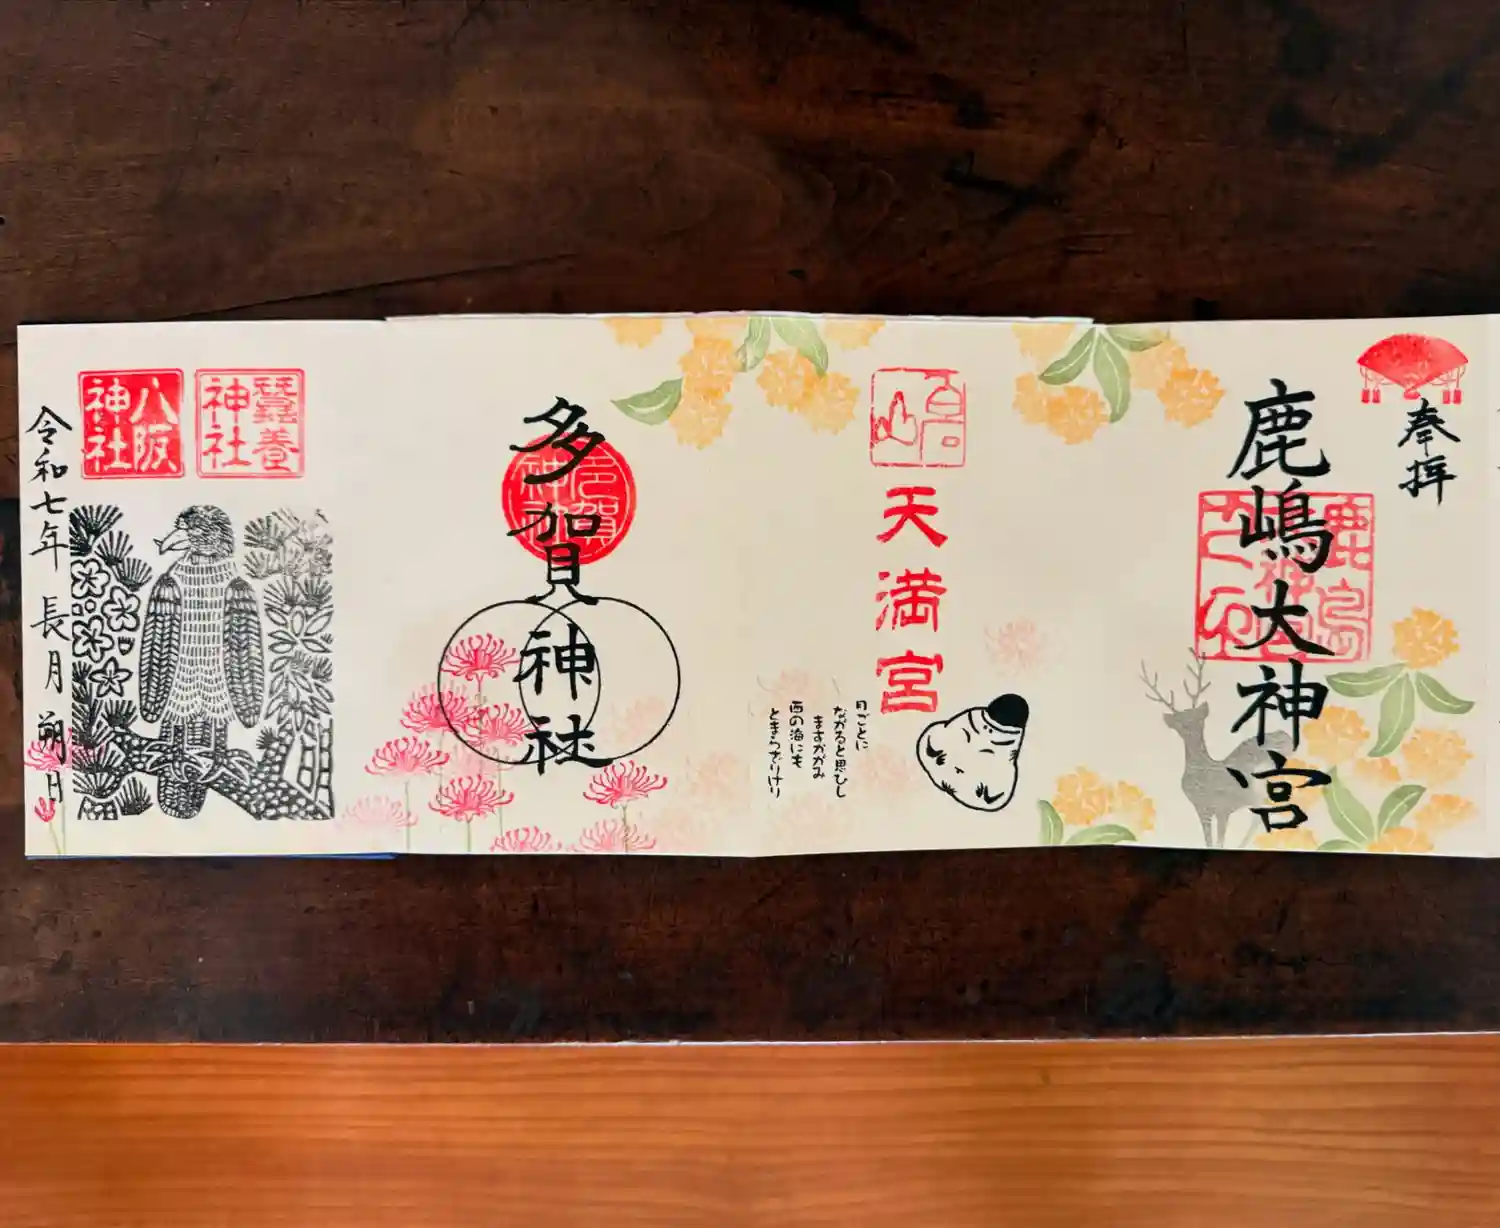 奉拝
鹿嶋大神宮
天満宮
月ごとに
ながると思ひし
ますかがみ
西の海にも
とまらざりけり
多賀神社
蠶養神社
八阪神社
令和七年 長月 朔日